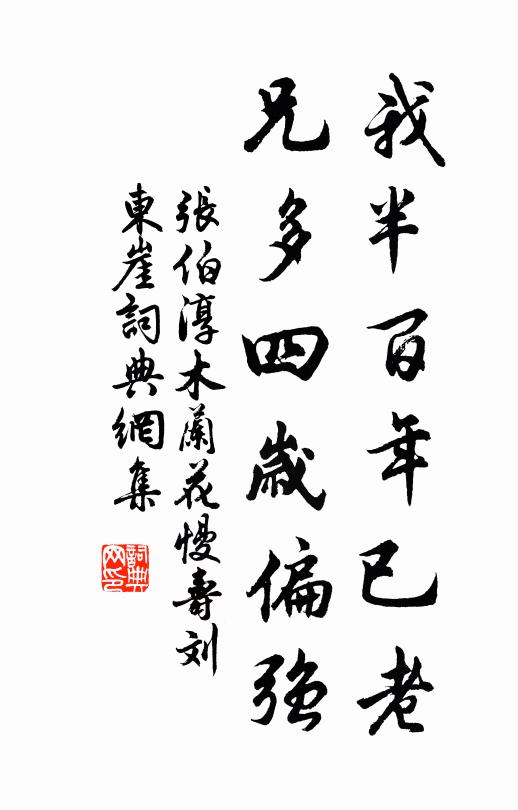 我半百年已老
兄多四歲偏強
張伯淳木蘭花慢壽刘
東崖詞典網集
詞典网印